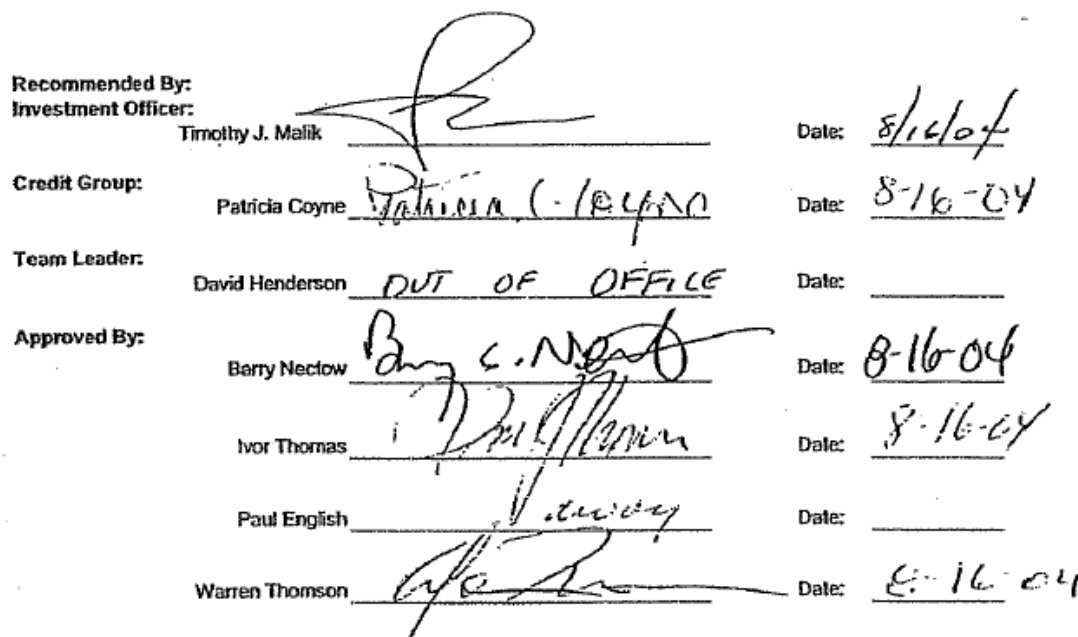 Recommended By:
Investment Officer:
Timothy J. Malik Date: 8/16/04
Credit Group:
Patricia Coyne Patricia Coyne Date: 8-16-04
Team Leader:
David Henderson OUT OF OFFICE Date:
Approved By:
Barry Nectow Barry C. Nectow Date: 8-16-04
Ivor Thomas Date: 8-16-04
Paul English Date:
Warren Thomson Date: 8-16-04